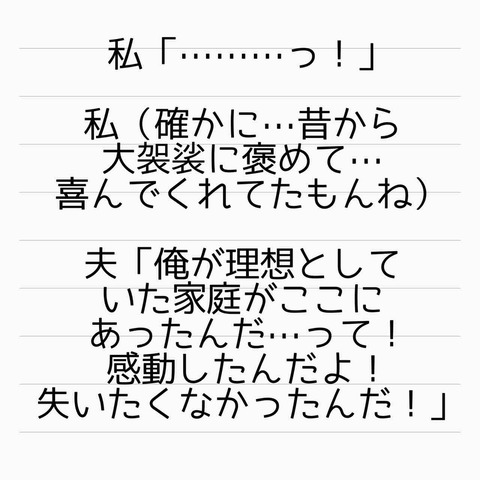 私「………っ！」
私（確かに…昔から
大袈裟に褒めて…
喜んでくれてたもんね）
夫「俺が理想として
いた家庭がここに
あったんだ…って！
感動したんだよ！
失いたくなかったんだ！」